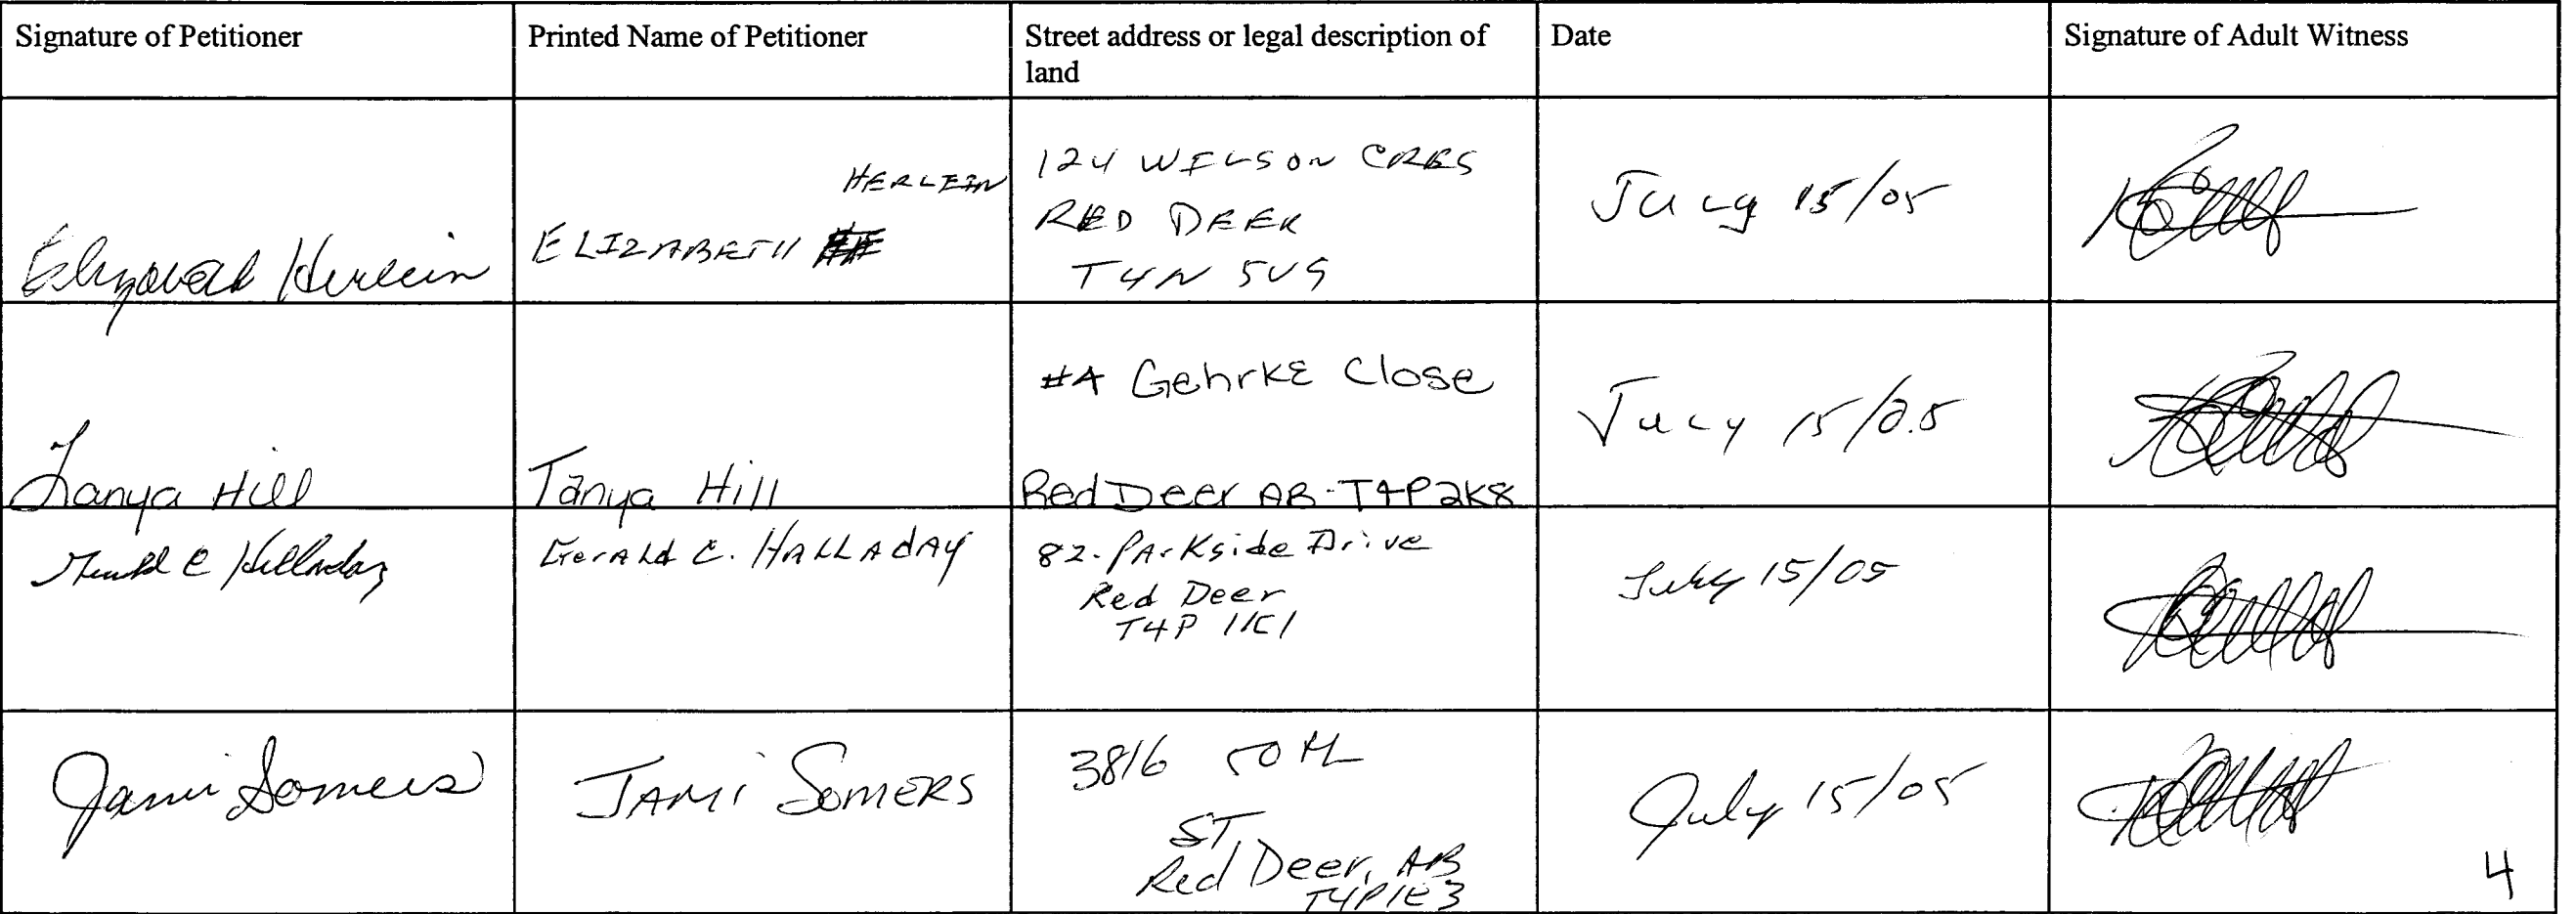 Signature of Petitioner
Printed Name of Petitioner
Street address or legal description of
land
Date
Signature of Adult Witness
Elizabeth Herlein
HERLEIN
ELIZABETH
124 WILSON CRES
RED DEER
T4N 5V9
July 15/05
Tanya Hill
Tanya Hill
#4 Gehrke Close
Red Deer AB - T4P 2K8
July 15/05
Gerald C Halladay
Gerald C. HALLADAY
82 - Parkside Drive
Red Deer
T4P 1K1
July 15/05
Jami Somers
JAMi SOMERS
3816 50th
ST
Red Deer, AB
T4P1E3
July 15/05
4